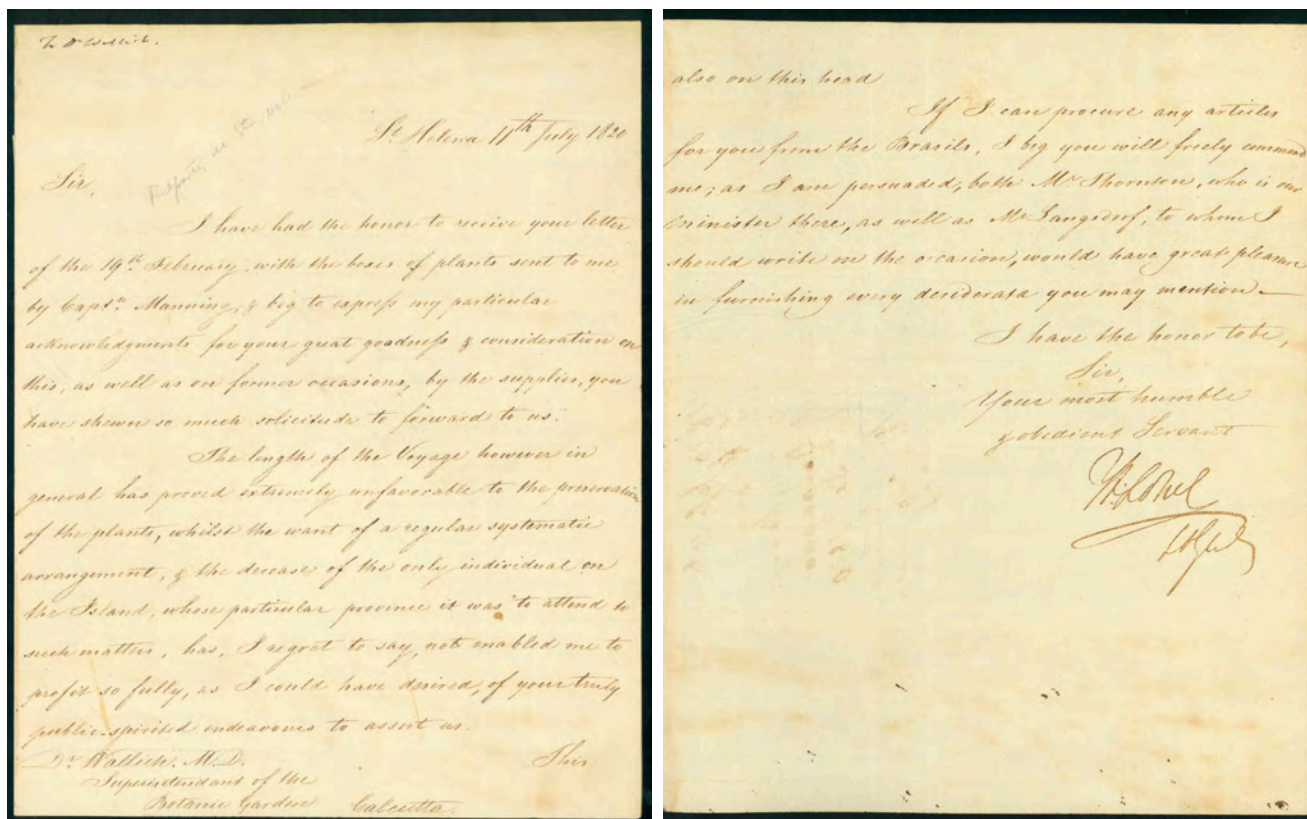 To Dr Wallich.
St Helena 11th July 1820
Sir,
I have had the honor to receive your letter
of the 19th February, with the boxes of plants sent to me
by Captn Manning, & beg to express my particular
acknowledgments for your great goodness & consideration on
this, as well as on former occasions, by the supplies, you
have shewn so much solicitude to forward to us.
The length of the Voyage however in
general has proved extremely unfavorable to the preservation
of the plants, whilst the want of a regular systematic
arrangement, & the decease of the only individual on
the Island, whose particular province it was to attend to
such matters, has, I regret to say, not enabled me to
profit so fully, as I could have desired, of your truly
public-spirited endeavours to assist us.
Dr Wallich. M.D. This
Superintendant of the
Botanic Garden Calcutta.
also on this head
If I can procure any articles
for you from the Brasils, I beg you will freely command
me; as I am persuaded, both Mr Thornton, who is our
minister there, as well as Mr Langsdorf, to whom I
should write on the occasion, would have great pleasure
in furnishing every desiderata you may mention.—
I have the honor to be,
Sir,
Your most humble
& obedient Servant